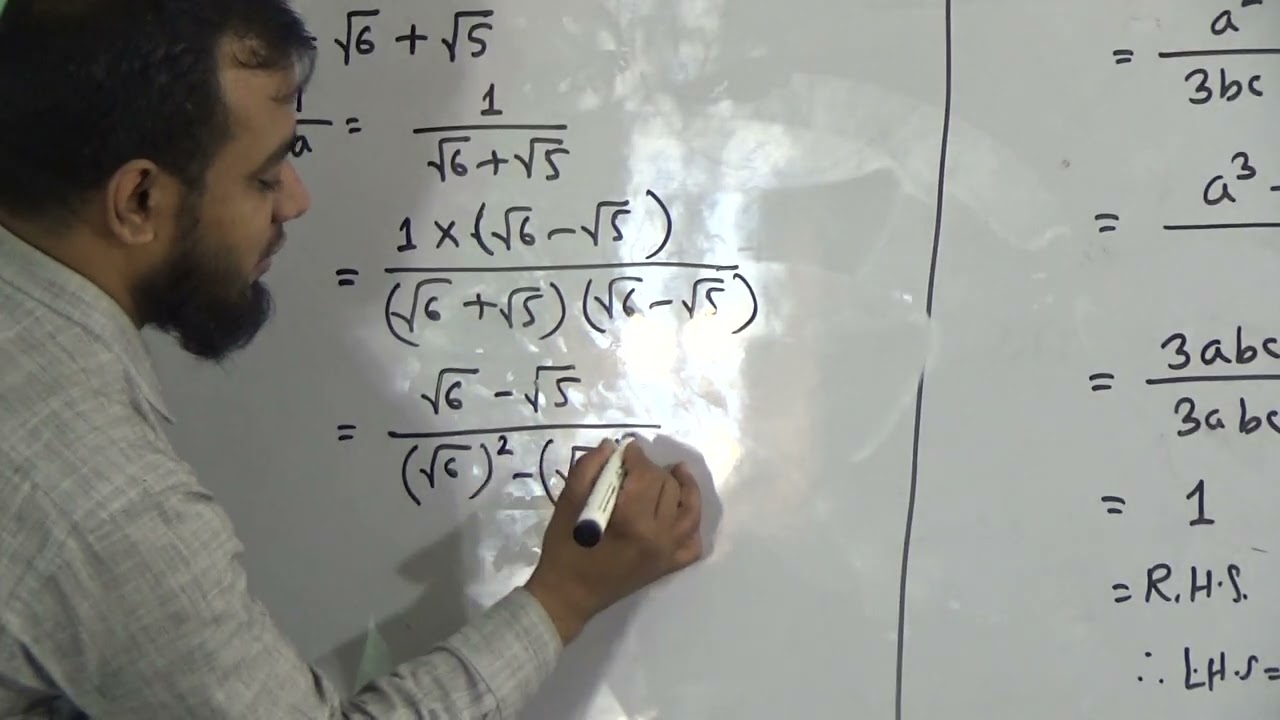 = √6 + √5
1/a = 1/(√6 + √5)
= 1 × (√6 − √5)
(√6 + √5) (√6 − √5)
= √6 − √5
(√6)² − (√
= a
3bc
= a³ −
= 3abc
3abc
= 1
= R.H.S.
∴ L.H.S =